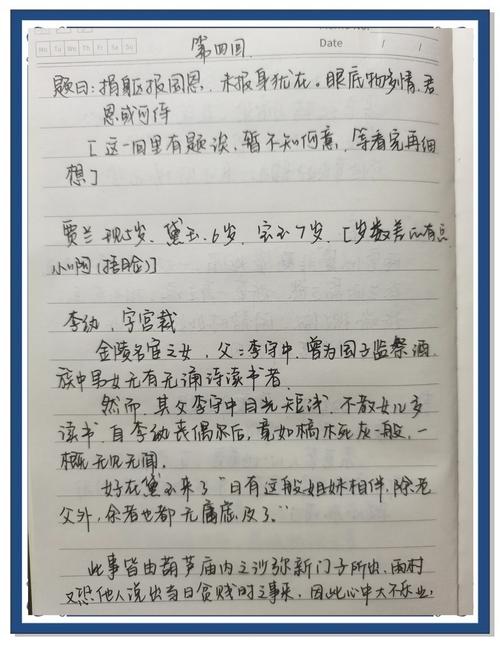 第四回
Mo Tu We Th Fr Sa Su
Date / /
题曰：捐躯报国恩，未报身犹在。眼底物多情，君
恩或可待
[这一回里有题诶，暂不知何意，等看完再细
想]
贾兰现5岁、黛玉6岁、宝玉7岁、[岁数差的有点
小啊(捂脸)]
李纨，字宫裁
金陵名宦之女，父：李守中，曾为国子监祭酒
族中男女无有无诵诗读书者
然而，其父李守中目光短浅，不教女儿多
读书，自李纨丧偶后，竟如槁木死灰一般，一
概无见无闻，
好在黛玉来了"日有这般姐妹相伴，除老
父外，余者也都无庸虑及了。"
此事皆由葫芦庙内之沙弥新门子所出，雨村
又恐他人说出当日贫贱时之事来，因此心中大不乐业，